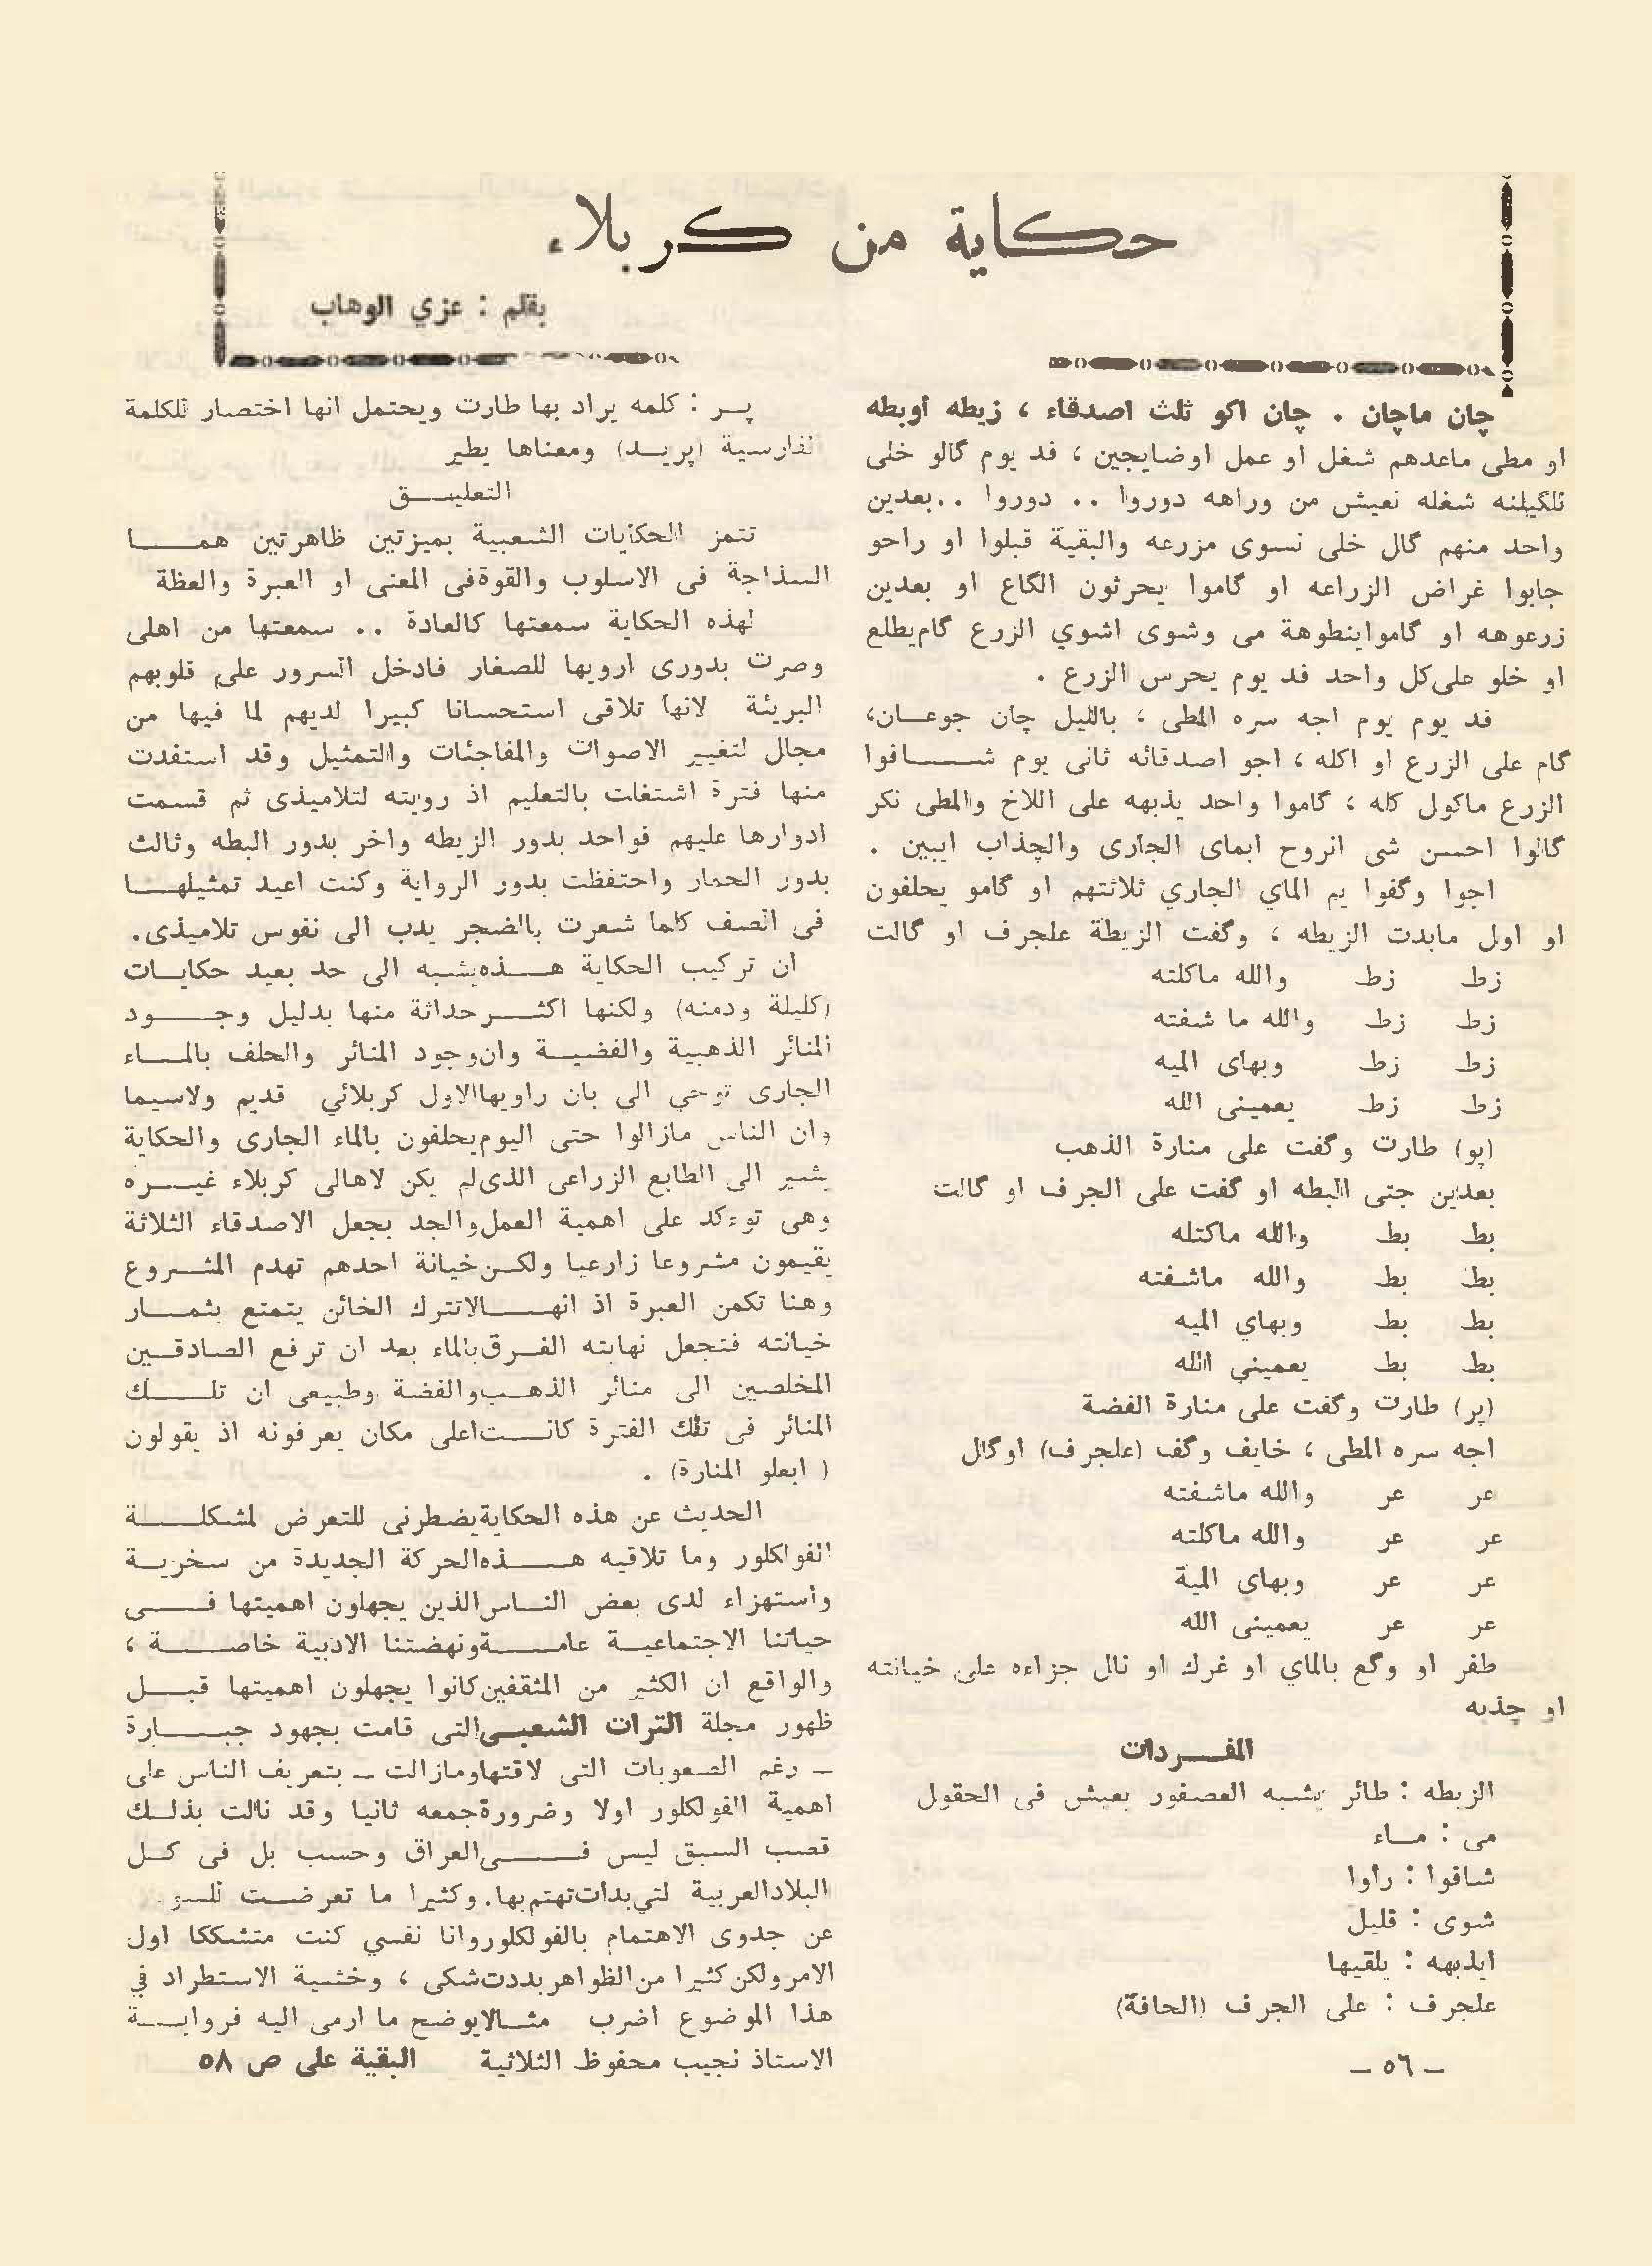 حكاية من كربلاء
بقلم : عزي الوهاب
چان ماچان . چان اكو ثلث اصدقاء ، زيطه اوبطه
او مطى ماعدهم شغل او عمل اوضايجين ، فد يوم گالو خلى
نلگيلنه شغله نعيش من وراهه دوروا .. دوروا ..بعدين
واحد منهم گال خلى نسوى مزرعه والبقية قبلوا او راحو
جابوا غراض الزراعه او گاموا يحرثون الگاع او بعدين
زرعوهه او گاموا ينطوهة مى وشوى اشوي الزرع گام يطلع
او خلو على كل واحد فد يوم يحرس الزرع .
فد يوم يوم اجه سره المطى ، بالليل چان جوعان،
گام على الزرع او اكله ، اجو اصدقائه ثانى يوم شافوا
الزرع ماكول كله ، گاموا واحد يذبهه على اللاخ والمطى نكر
گالوا احسن شى انروح ابماى الجارى والچذاب ايبين .
اجوا وگفوا يم الماي الجاري ثلاثتهم او گامو يحلفون
او اول مابدت الزيطه ، وگفت الزيطة علجرف او گالت
زط زط والله ماكلته
زط زط والله ما شفته
زط زط وبهاى الميه
زط زط يعمينى الله
(پو) طارت وگفت على منارة الذهب
بعدين جتى البطه او گفت على الجرف او گالت
بط بط والله ماكتله
بط بط والله ماشفته
بط بط وبهاي الميه
بط بط يعميني الله
(پر) طارت وگفت على منارة الفضة
اجه سره المطى ، خايف وگف (علجرف) اوگال
عر عر والله ماشفته
عر عر والله ماكلته
عر عر وبهاي المية
عر عر يعمينى الله
طفر او وگع بالماي او غرك او نال جزاءه على خيانته
او چذبه
المفردات
الزيطه : طائر يشبه العصفور يعيش فى الحقول
مى : ماء
شافوا : راوا
شوى : قليل
ايذبهه : يلقيها
علجرف : على الجرف (الحافة)
— ٥٦ —
پر : كلمه يراد بها طارت ويحتمل انها اختصار للكلمة
الفارسية (پريد) ومعناها يطير
التعليق
تتمز الحكايات الشعبية بميزتين ظاهرتين هما
السذاجة فى الاسلوب والقوة فى المعنى او العبرة والعظة
لهذه الحكاية سمعتها كالعادة .. سمعتها من اهلى
وصرت بدورى ارويها للصغار فادخل السرور على قلوبهم
البريئة لانها تلاقى استحسانا كبيرا لديهم لما فيها من
مجال لتغيير الاصوات والمفاجئات والتمثيل وقد استفدت
منها فترة اشتغلت بالتعليم اذ رويته لتلاميذى ثم قسمت
ادوارها عليهم فواحد بدور الزيطه واخر بدور البطه وثالث
بدور الحمار واحتفظت بدور الرواية وكنت اعيد تمثيلها
فى الصف كلما شعرت بالضجر يدب الى نفوس تلاميذى.
ان تركيب الحكاية هذه يشبه الى حد بعيد حكايات
(كليلة ودمنه) ولكنها اكثر حداثة منها بدليل وجود
المنائر الذهبية والفضية وان وجود المنائر والحلف بالماء
الجارى توحي الى بان راويها الاول كربلائي قديم ولاسيما
وان الناس مازالوا حتى اليوم يحلفون بالماء الجارى والحكاية
يشير الى الطابع الزراعى الذى لم يكن لاهالى كربلاء غيره
وهى توءكد على اهمية العمل والجد بجعل الاصدقاء الثلاثة
يقيمون مشروعا زارعيا ولكن خيانة احدهم تهدم المشروع
وهنا تكمن العبرة اذ انها لاتترك الخائن يتمتع بثمار
خيانته فتجعل نهايته الغرق بالماء بعد ان ترفع الصادقين
المخلصين الى منائر الذهب والفضة وطبيعى ان تلك
المنائر فى تلك الفترة كانت اعلى مكان يعرفونه اذ يقولون
( ابعلو المنارة) .
الحديث عن هذه الحكاية يضطرنى للتعرض لمشكلة
الفولكلور وما تلاقيه هذه الحركة الجديدة من سخرية
واستهزاء لدى بعض الناس الذين يجهلون اهميتها فى
حياتنا الاجتماعية عامة ونهضتنا الادبية خاصة ،
والواقع ان الكثير من المثقفين كانوا يجهلون اهميتها قبل
ظهور مجلة التراث الشعبى التى قامت بجهود جبارة
— رغم الصعوبات التى لاقتها ومازالت — بتعريف الناس على
اهمية الفولكلور اولا وضرورة جمعه ثانيا وقد نالت بذلك
قصب السبق ليس فى العراق وحسب بل فى كل
البلاد العربية لتي بدات تهتم بها. وكثيرا ما تعرضت
عن جدوى الاهتمام بالفولكلور وانا نفسي كنت متشككا اول
الامر ولكن كثيرا من الظواهر بددت شكى ، وخشية الاستطراد في
هذا الموضوع اضرب مثالا يوضح ما ارمى اليه فرواية
الاستاذ نجيب محفوظ الثلاثية البقية على ص ٥٨